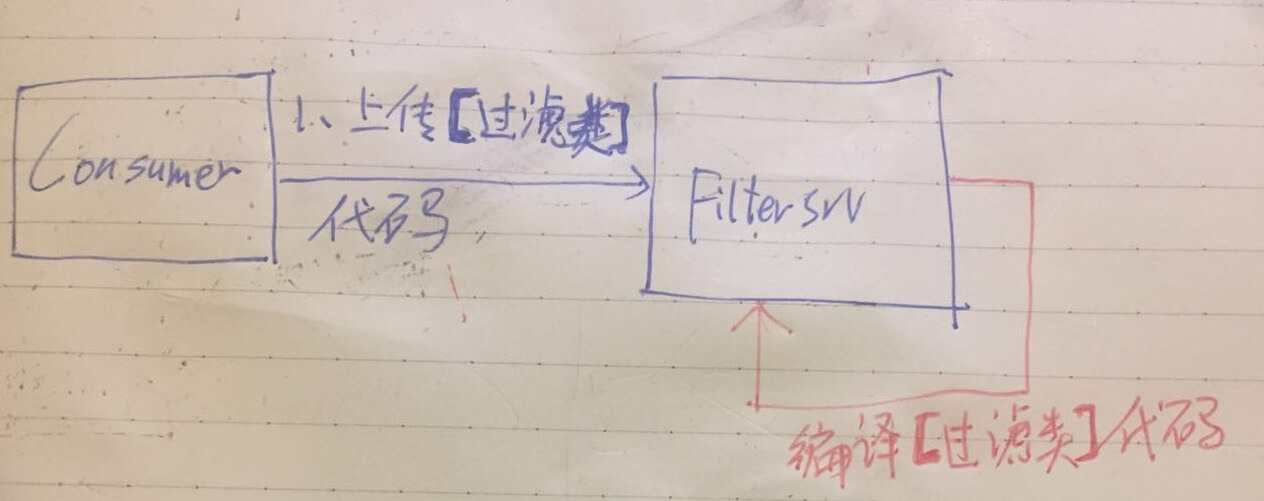 Consumer
1、上传【过滤类】
代码
Filtersrv
编译【过滤类】代码